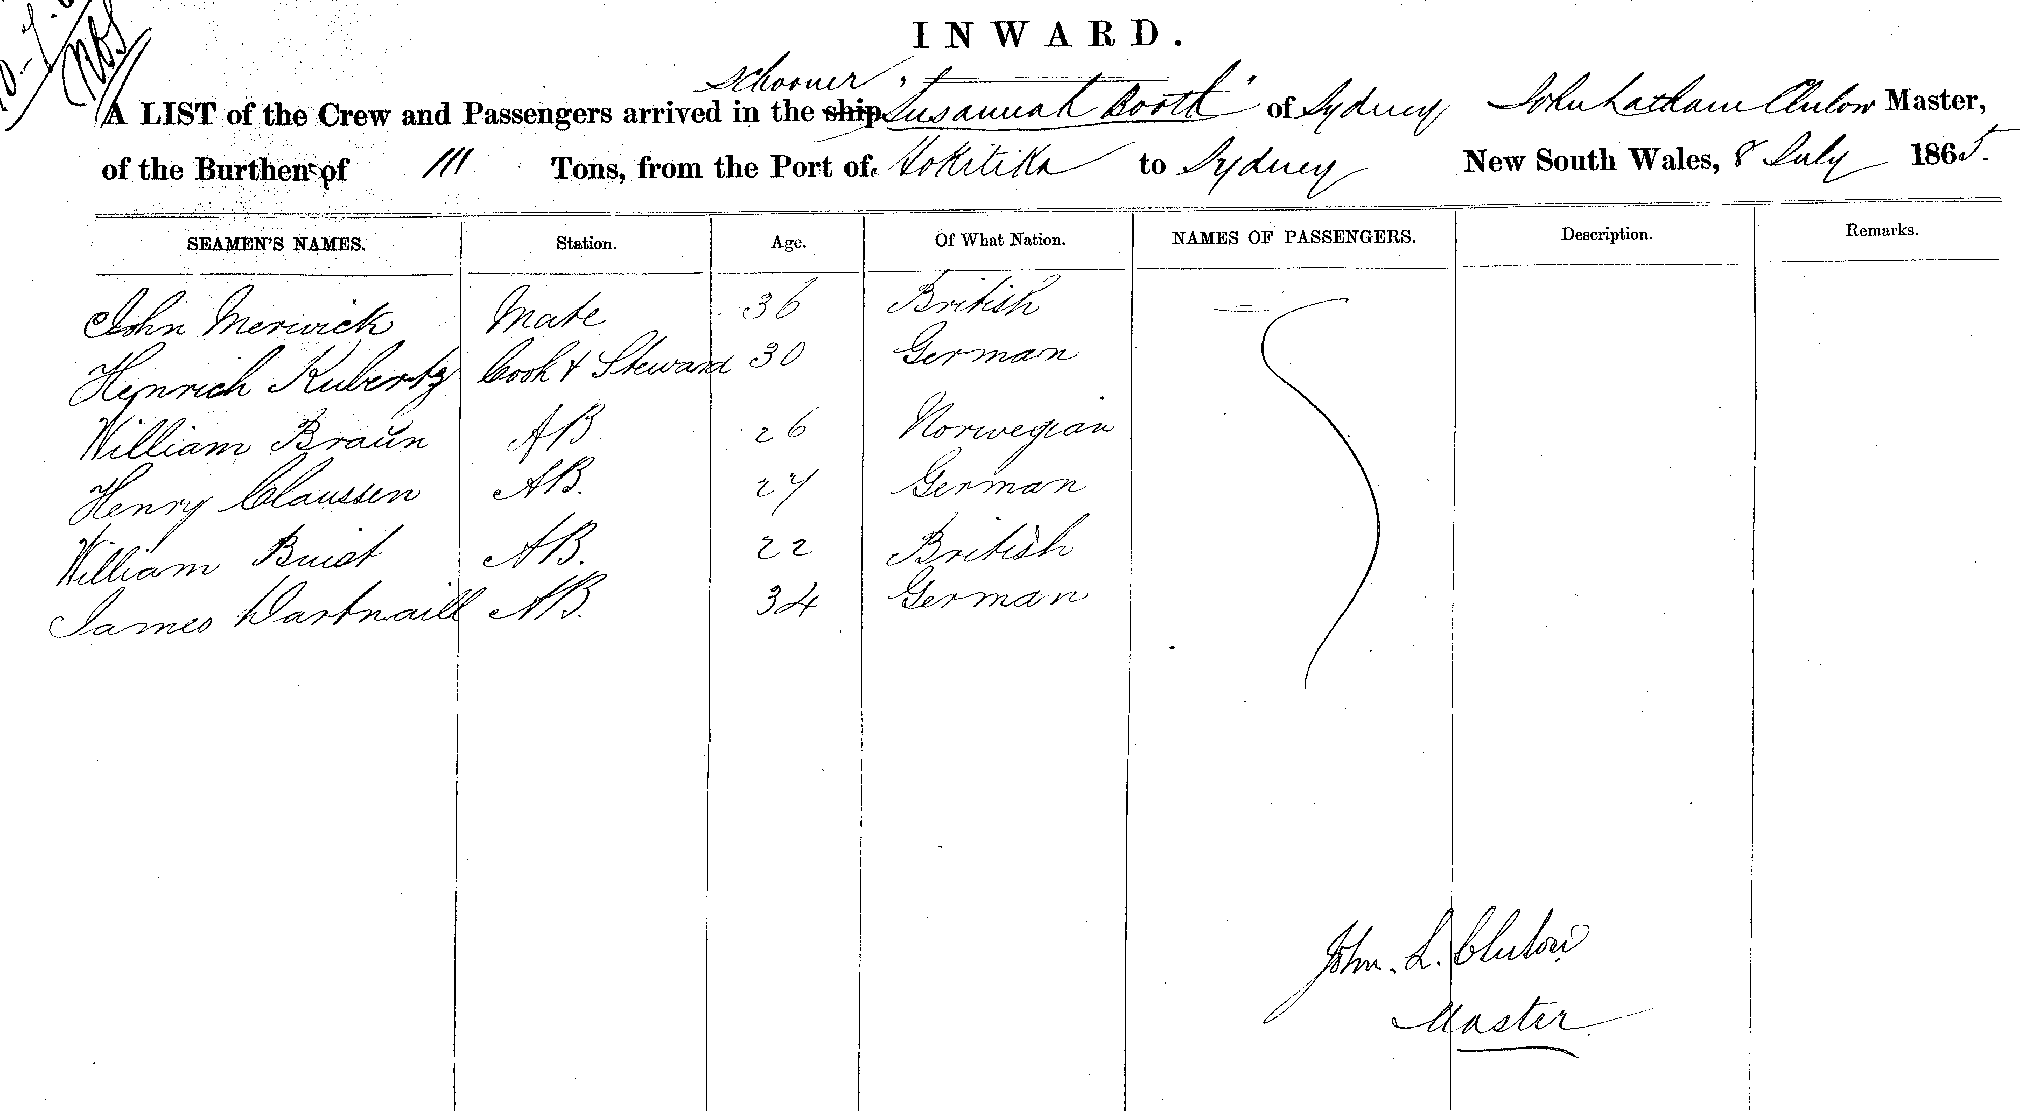 INWARD.
Schooner
A LIST of the Crew and Passengers arrived in the ship "Susannah Booth" of Sydney John Latham Clulow Master,
of the Burthen of 111 Tons, from the Port of Hokitika to Sydney New South Wales, 8 July 1865.
SEAMEN'S NAMES. Station. Age. Of What Nation. NAMES OF PASSENGERS. Description. Remarks.
John Merwick Mate 36 British
Heinrich Kubertz Cook & Steward 30 German
William Braun AB 26 Norwegian
Henry Claussen AB. 27 German
William Buist AB. 22 British
James Dartnaill AB. 34 German
John. L. Clulow
Master